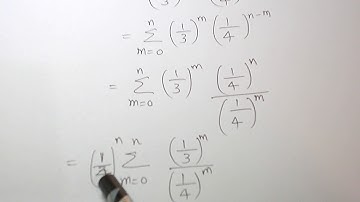 (1/3) (1/4)
= ∑_{m=0}^{n} (1/3)^m (1/4)^{n-m}
= ∑_{m=0}^{n} (1/3)^m (1/4)^n / (1/4)^m
= (1/4)^n ∑_{m=0}^{n} (1/3)^m / (1/4)^m